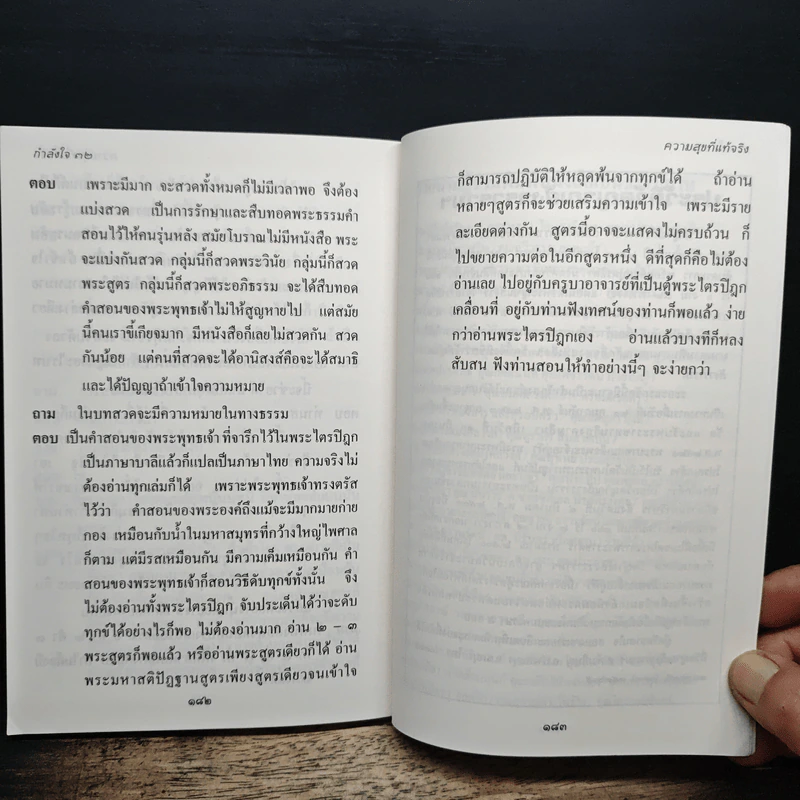 กำลังใจ ๓๒
ตอบ เพราะมีมาก จะสวดทั้งหมดก็ไม่มีเวลาพอ จึงต้อง
แบ่งสวด เป็นการรักษาและสืบทอดพระธรรมคำ
สอนไว้ให้คนรุ่นหลัง สมัยโบราณไม่มีหนังสือ พระ
จะแบ่งกันสวด กลุ่มนี้ก็สวดพระวินัย กลุ่มนี้ก็สวด
พระสูตร กลุ่มนี้ก็สวดพระอภิธรรม จะได้สืบทอด
คำสอนของพระพุทธเจ้าไม่ให้สูญหายไป แต่สมัย
นี้คนเราขี้เกียจมาก มีหนังสือก็เลยไม่สวดกัน สวด
กันน้อย แต่คนที่สวดจะได้อานิสงส์คือจะได้สมาธิ
และได้ปัญญาถ้าเข้าใจความหมาย
ถาม ในบทสวดจะมีความหมายในทางธรรม
ตอบ เป็นคำสอนของพระพุทธเจ้า ที่จารึกไว้ในพระไตรปิฎก
เป็นภาษาบาลีแล้วก็แปลเป็นภาษาไทย ความจริงไม่
ต้องอ่านทุกเล่มก็ได้ เพราะพระพุทธเจ้าทรงตรัส
ไว้ว่า คำสอนของพระองค์ถึงแม้จะมีมากมายก่าย
กอง เหมือนกับน้ำในมหาสมุทรที่กว้างใหญ่ไพศาล
ก็ตาม แต่มีรสเหมือนกัน มีความเค็มเหมือนกัน คำ
สอนของพระพุทธเจ้าก็สอนวิธีดับทุกข์ทั้งนั้น จึง
ไม่ต้องอ่านทั้งพระไตรปิฎก จับประเด็นได้ว่าจะดับ
ทุกข์ได้อย่างไรก็พอ ไม่ต้องอ่านมาก อ่าน ๒ - ๓
พระสูตรก็พอแล้ว หรืออ่านพระสูตรเดียวก็ได้ อ่าน
พระมหาสติปัฏฐานสูตรเพียงสูตรเดียวจนเข้าใจ
๑๘๒
ความสุขที่แท้จริง
ก็สามารถปฏิบัติให้หลุดพ้นจากทุกข์ได้ ถ้าอ่าน
หลายๆสูตรก็จะช่วยเสริมความเข้าใจ เพราะมีราย
ละเอียดต่างกัน สูตรนี้อาจจะแสดงไม่ครบถ้วน ก็
ไปขยายความต่อในอีกสูตรหนึ่ง ดีที่สุดก็คือไม่ต้อง
อ่านเลย ไปอยู่กับครูบาอาจารย์ที่เป็นตู้พระไตรปิฎก
เคลื่อนที่ อยู่กับท่านฟังเทศน์ของท่านก็พอแล้ว ง่าย
กว่าอ่านพระไตรปิฎกเอง อ่านแล้วบางทีก็หลง
สับสน ฟังท่านสอนให้ทำอย่างนี้ๆ จะง่ายกว่า
๑๘๓